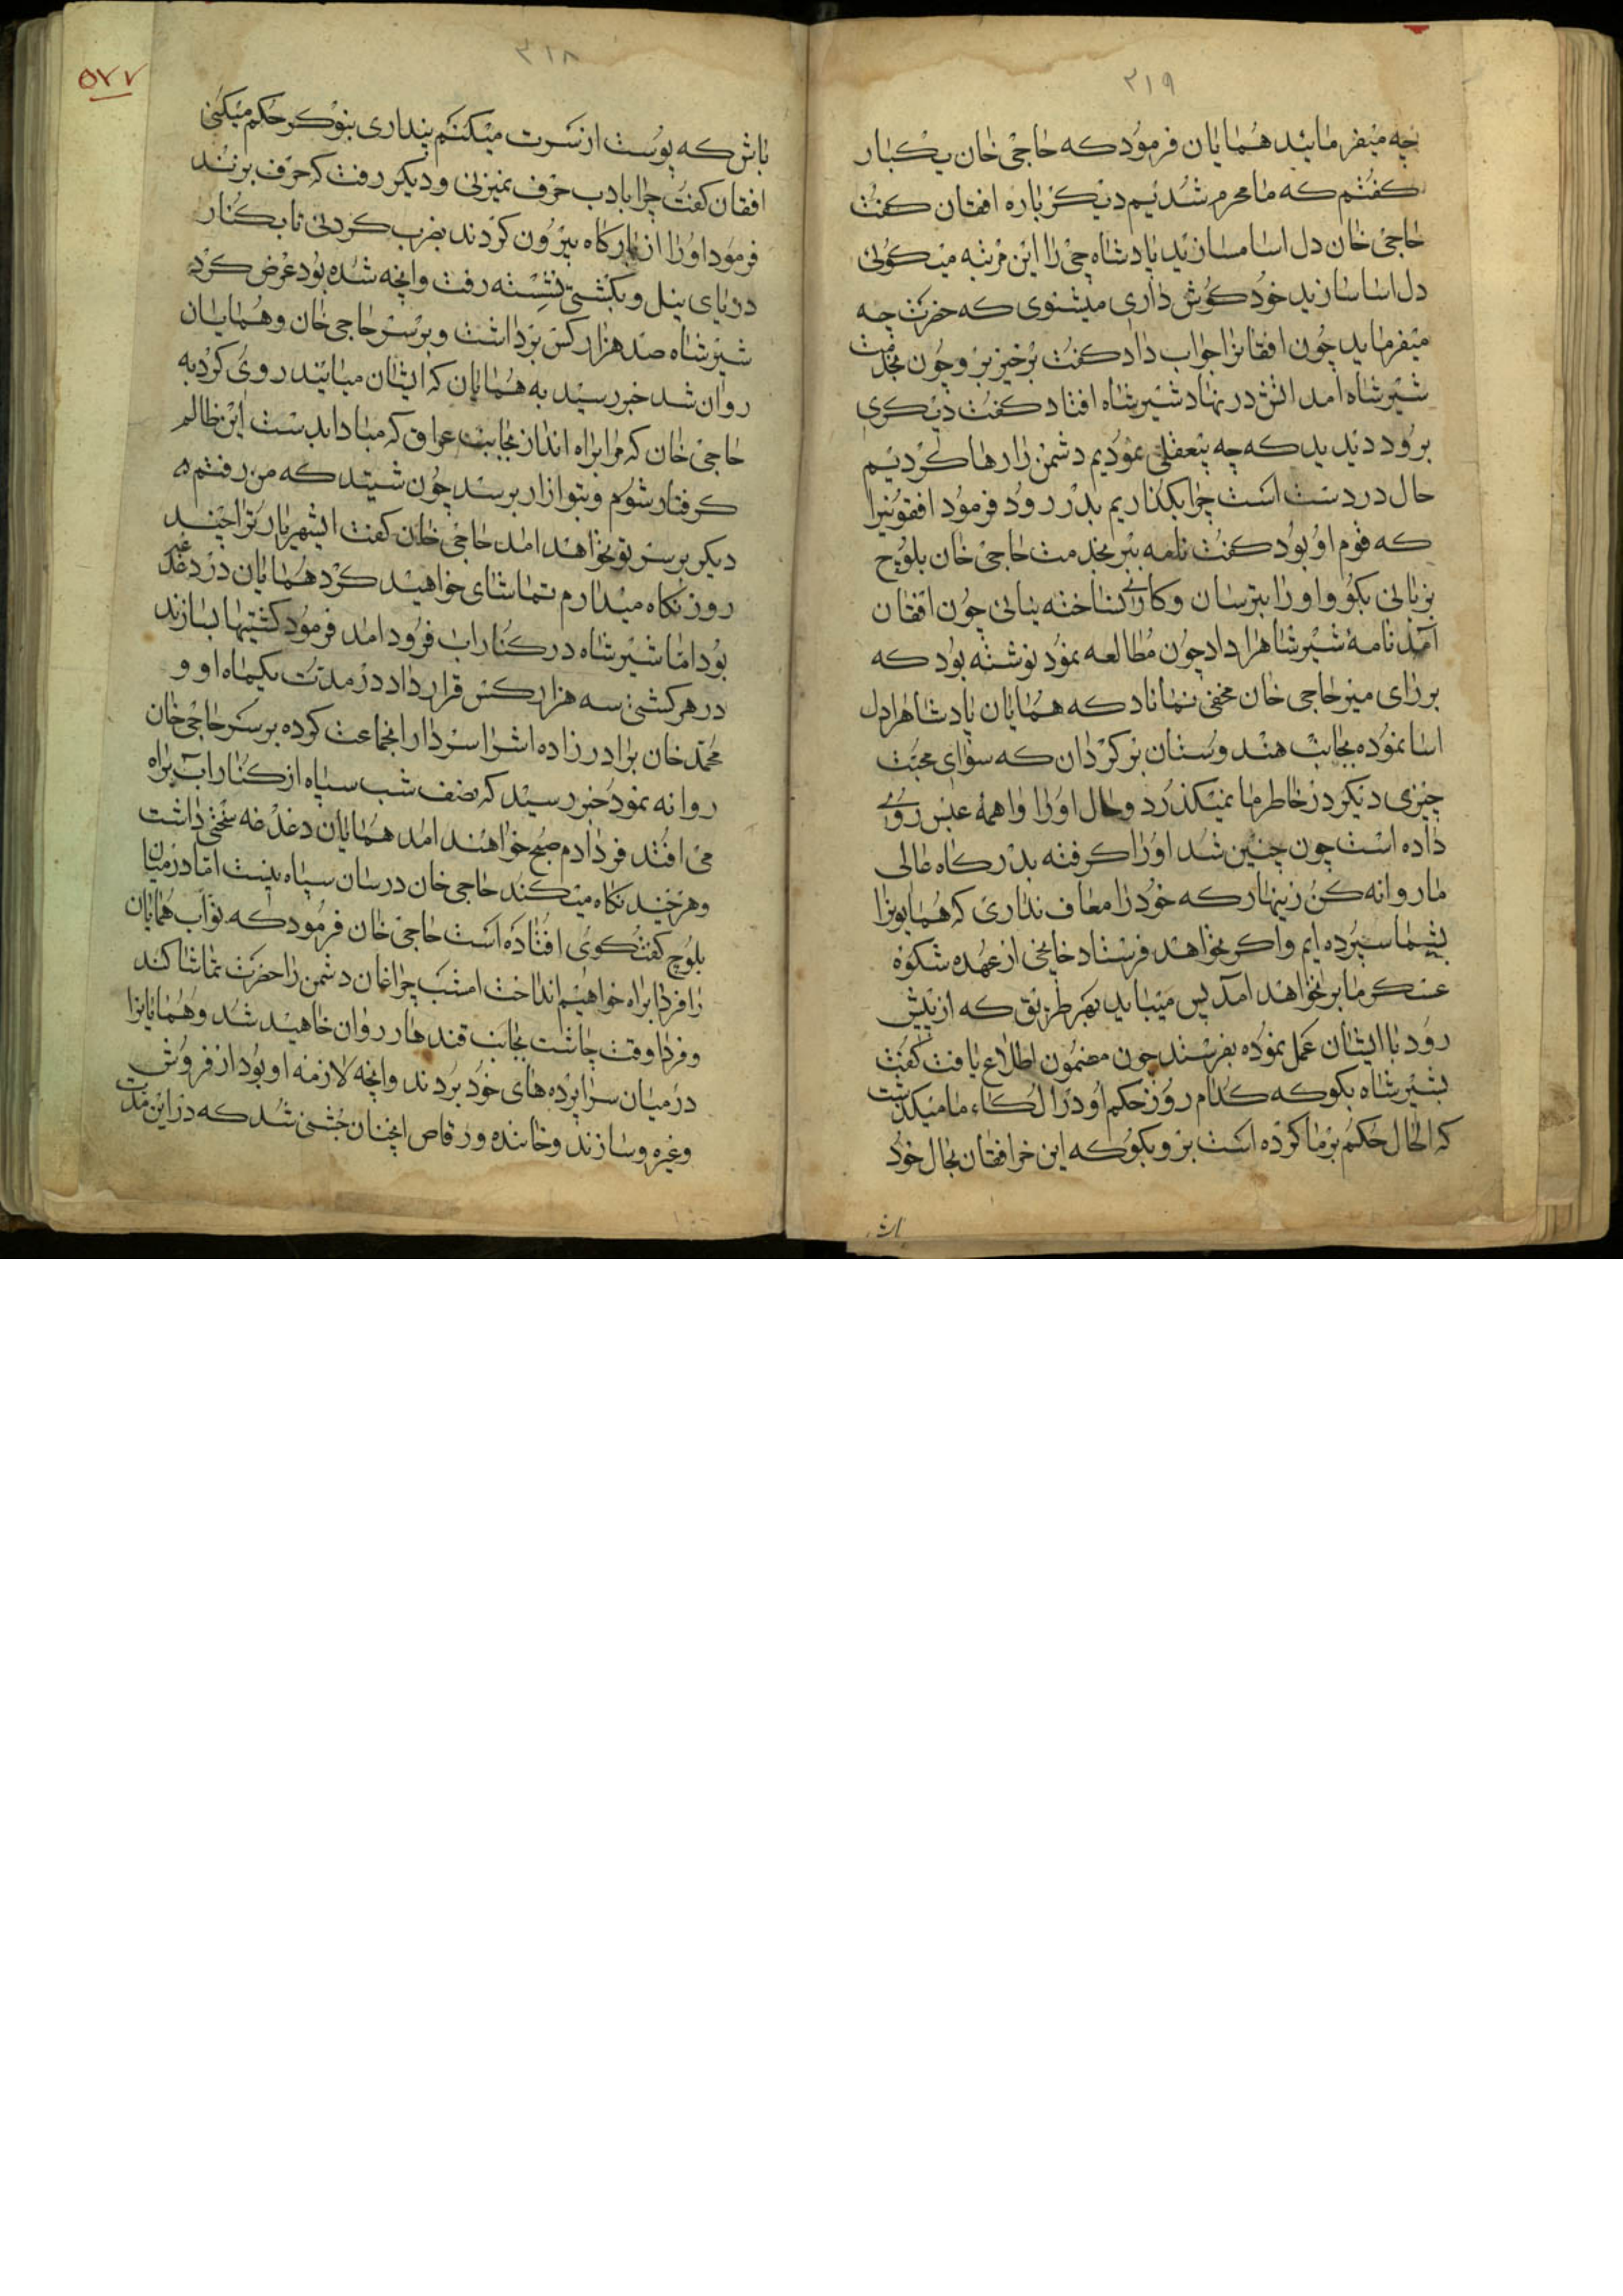 ۳۱۹
چه میفرمایند همایان فرمود که حاجی خان یکبار
کفتم که ما محرم شدیم دیکر باره افقان کفت
حاجی خان دل اسا مسازید پادشاه چی را این مرتبه میکوئی
دل اسا سازید خود کوش داری میشنوی که حضرت چه
میفرماید چون افقانرا جواب داد کفت برخیز برو چون بخدمت
شیرشاه امد اتش در نهاد شیرشاه افتاد کفت دیکری
برود دیدید که چه بیعقلی نمودیم دشمن را رها کردیم
حال در دست است چرا بکذاریم بدر رود فرمود افقونیرا
که قوم او بود کفت نامه ببر بخدمت حاجی خان بلوچ
بزبانی بکو و او را بترسان و کاری نساخته نیائی چون افقان
آمد نامهٔ شیرشاهرا داد چون مطالعه نمود نوشته بود که
بر رای میر حاجی خان مخفی نماناد که همایان پادشاهرا دل
اسا نموده بجانب هندوستان برکردان که سوای محبت
چیزی دیکر در خاطر ما نمیکذرد و حال او را واهمهٔ عبس روی
داده است چون چنین شد او را کرفته بدرکاه عالی
ما روانه کن زینهار که خود را معاف نداری که همایونرا
بشما سپرده ایم و اکر نخواهند فرستاد خانخی از عهده شکوه
عسکر ما بر نخواهند آمد پس میباید بهر طریق که از پیش
رود با ایشان عمل نموده بفرستند چون مضمون اطلاع یافت کفت
بشیرشاه بکو که کدام روز حکم او در الکاء ما میکذشت
که الحال حکم بر ما کرده است برو بکو که این خر افقان بحال خود
باش
۳۱۸
۵۷۷
باش که پوست از سرت میکنم پنداری بنوکر حکم میکنی
افقان کفت چرا بادب حرف نمیزنی و دیکر رفت که حرف بزند
فرمود او را از بارکاه بیرون کردند بضرب کردنی تا بکنار
دریای نیل و بکشتی نشسته رفت وانچه شده بود عرض کرد
شیرشاه صد هزار کس برداشت و برسر حاجی خان و همایان
روان شد خبر رسید به همایان که ایشان میایند روی کرد به
حاجی خان که مرا براه انداز بجانب عراق که مبادا بدست این ظالم
کرفتار شوم و بتو ازار برسد چون شنید که من رفتم
دیکر برسر تو نخواهند امد حاجی خان کفت ایشهریار ترا چند
روز نکاه میدارم تماشای خواهید کرد همایان در دغدغه
بود اما شیرشاه در کنار اب فرود امد فرمود کشتیها بسازند
در هر کشتی سه هزار کس قرار داد در مدت یکماه او و
محمد خان برادرزاده اشرا سردار انجماعت کرده برسر حاجی خان
روانه نمود خبر رسید که نصف شب سپاه از کنار آب براه
می افتد فردا دم صبح خواهند امد همایان دغدغه سختی داشت
و هرچند نکاه میکند حاجی خان در سان سپاه نیست اما در میان
بلوچ کفتکوی افتاده است حاجی خان فرمود که نواب همایان
را فردا براه خواهیم انداخت امشب چراغان دشمن را حضرت تماشا کند
و فردا وقت چاشت بجانب قندهار روان خاهید شد و همایانرا
در میان سراپرده های خود بردند وانچه لازمه او بود از فروش
و غیره و سازند و خاننده و رقاص انچنان جشنی شد که در این مدت